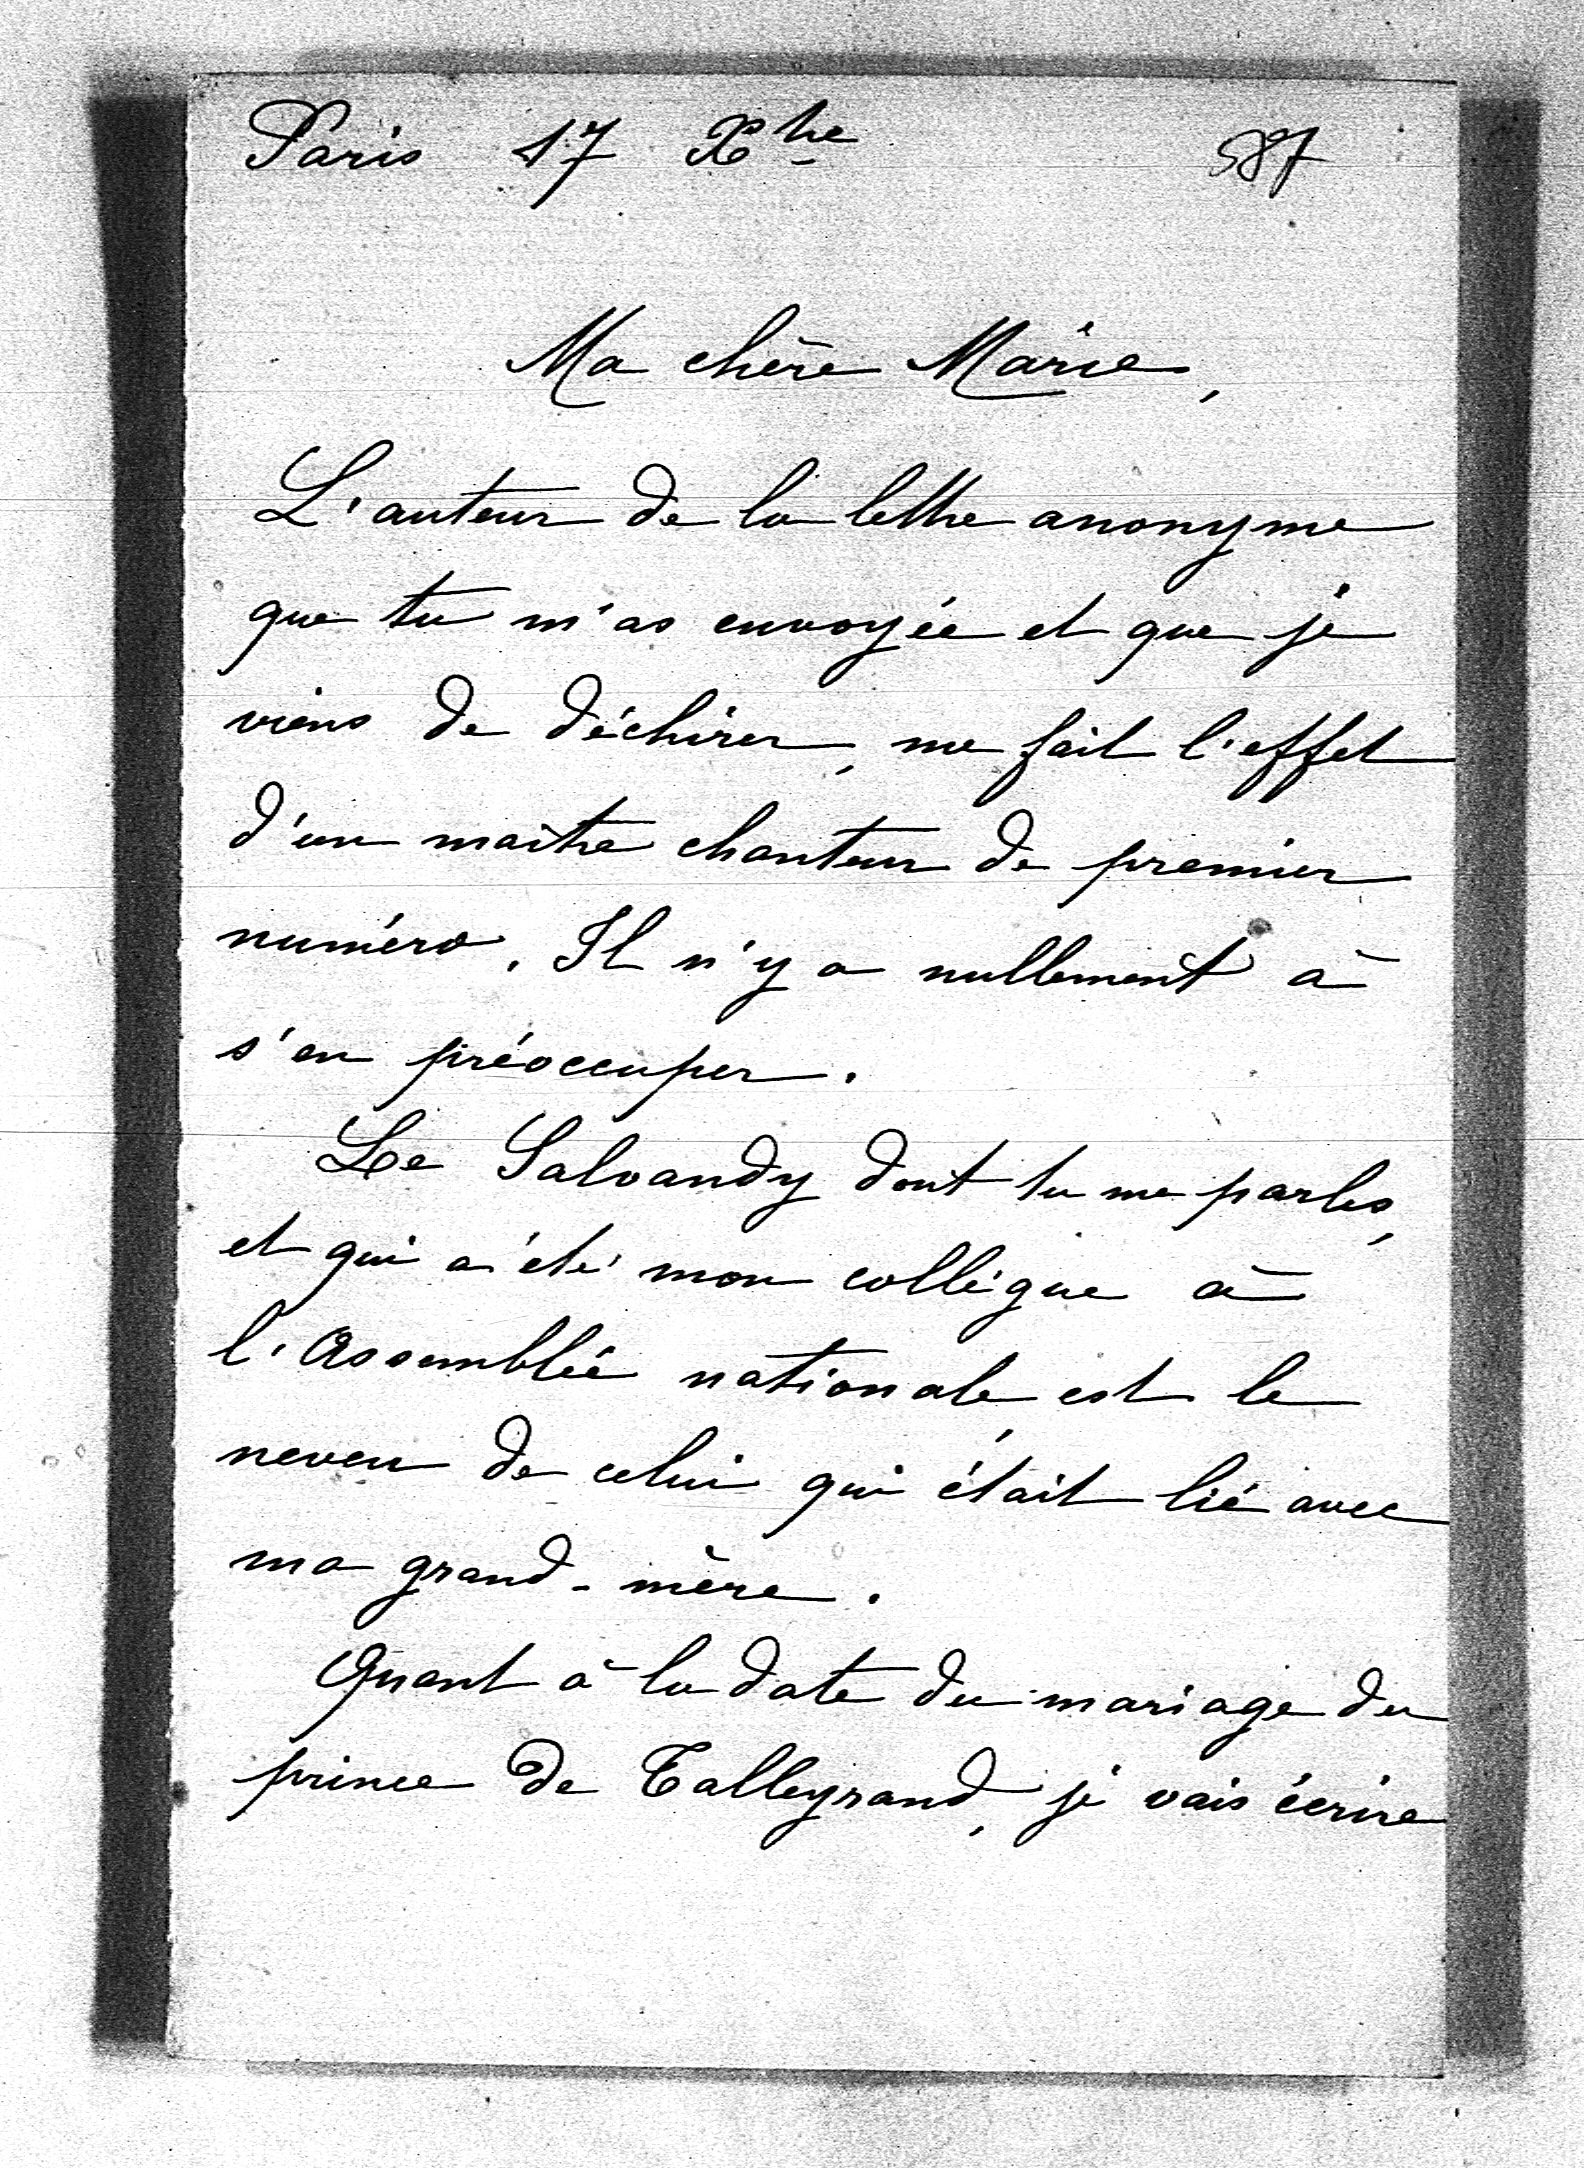 Paris 17 Xbre 587
Ma chère Marie,
L'auteur de la lettre anonyme
que tu m'as envoyée et que je
viens de déchirer, me fait l'effet
d'un maître chanteur de premier
numéro. Il n'y a nullement à
s'en préoccuper.
Le Salvandy dont tu me parles,
et qui a été mon collègue à
l'Assemblée nationale est le
neveu de celui qui était lié avec
ma grand-mère.
Quant à la date du mariage du
prince de Talleyrand, je vais écrire